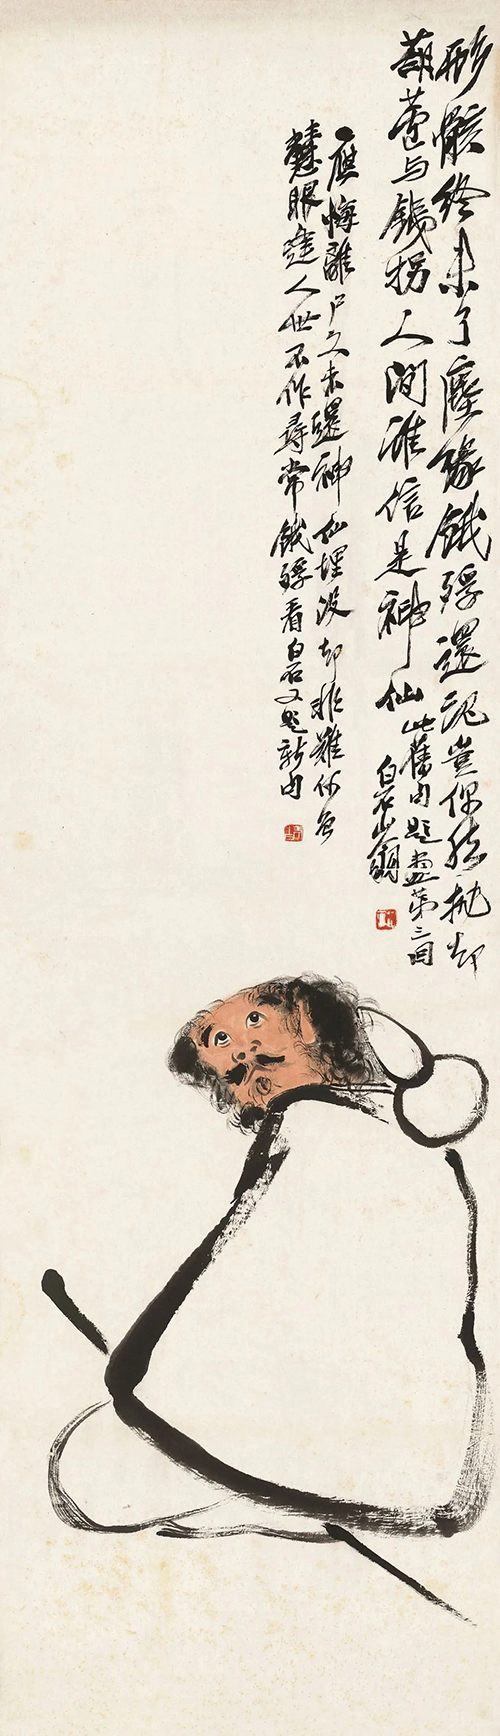 形骸終未了塵緣餓殍還魂豈偶然抛却
葫蘆与鐵拐人間誰信是神仙
此舊句題畫第三回
白石山翁
應悔離尸久未還神仙埋没却非難何曾
慧眼逢人世不作尋常餓殍看白石又題新句